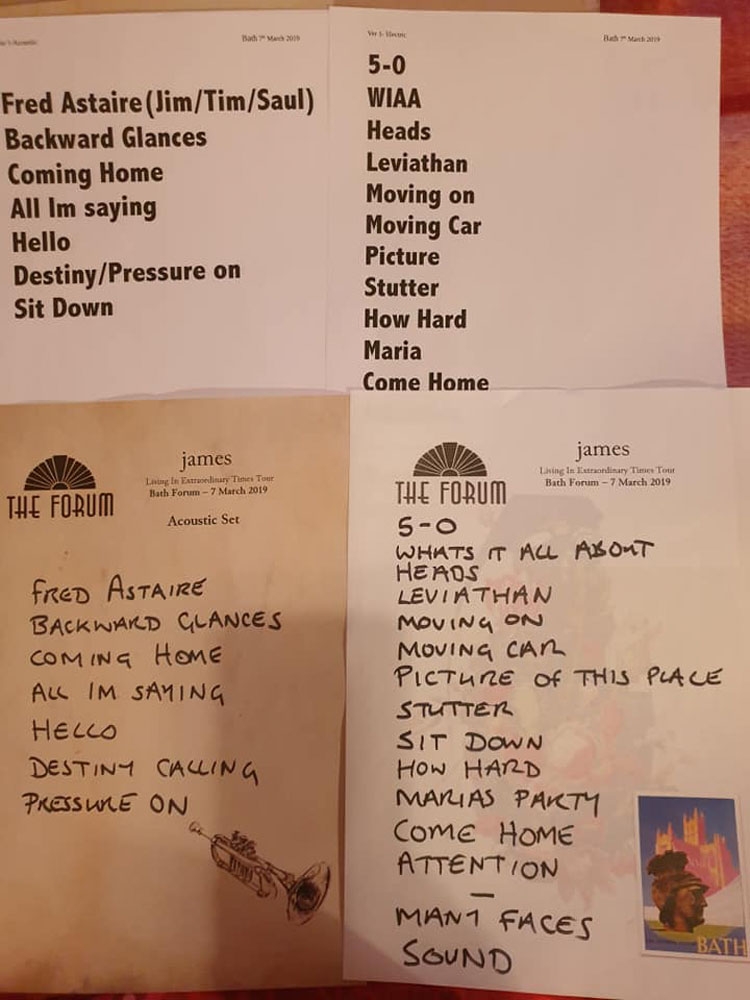 Bath 7th March 2019
Fred Astaire (Jim/Tim/Saul)
Backward Glances
Coming Home
All Im saying
Hello
Destiny/Pressure on
Sit Down
Ver 1- Electric
Bath 7th March 2019
5-0
WIAA
Heads
Leviathan
Moving on
Moving Car
Picture
Stutter
How Hard
Maria
Come Home
THE FORUM
james
Living In Extraordinary Times Tour
Bath Forum – 7 March 2019
Acoustic Set
FRED ASTAIRE
BACKWARD GLANCES
COMING HOME
ALL IM SAYING
HELLO
DESTINY CALLING
PRESSURE ON
THE FORUM
james
Living In Extraordinary Times Tour
Bath Forum – 7 March 2019
5-0
WHATS IT ALL ABOUT
HEADS
LEVIATHAN
MOVING ON
MOVING CAR
PICTURE OF THIS PLACE
STUTTER
SIT DOWN
HOW HARD
MARIAS PARTY
COME HOME
ATTENTION
—
MANY FACES
SOUND
BATH